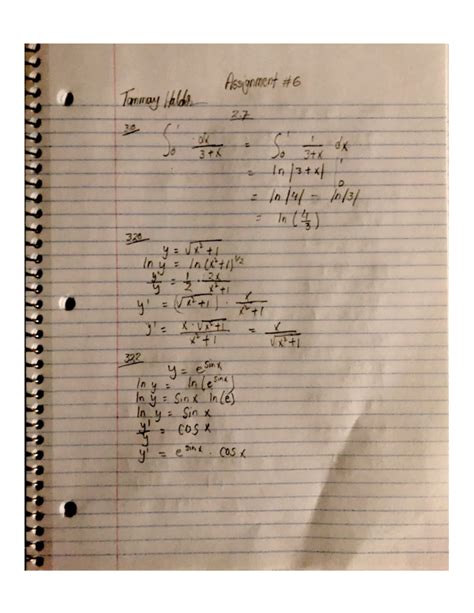 Assignment #6
Tanmay Halde
2.7
∫₀¹ dx/(3+x) = ∫₀¹ 1/(3+x) dx
= ln |3+x| |₀¹
= ln |4| - ln |3|
= ln (4/3)
320
y = √(x²+1)
ln y = ln (x²+1)^(1/2)
y'/y = 1/2 · 2x/(x²+1)
y' = (√(x²+1)) · x/(x²+1)
y' = x·√(x²+1)/(x²+1) = x/√(x²+1)
322
y = e^(sin x)
ln y = ln (e^(sin x))
ln y = sin x ln (e)
ln y = sin x
y'/y = cos x
y' = e^(sin x) · cos x